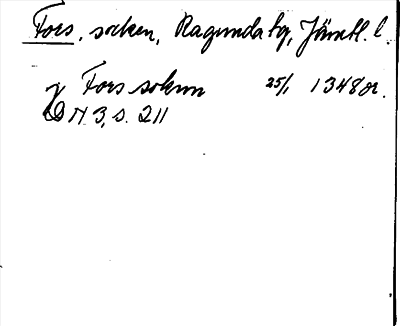 Fors, socken, Ragunda tg, Jämtl. l.
J Fors soknn 25/1 1348 or.
DN 3, s. 211